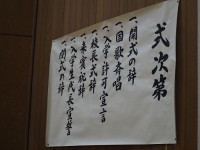 式次第
一、開式の辞
一、国歌斉唱
一、入学許可宣言
一、校長式辞
一、来賓祝辞
一、入学生代表宣誓
一、閉式の辞